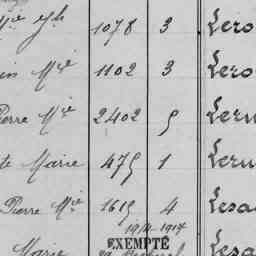 Mie Jh 1078 3 Lero
in Mie 1102 3 Lero
Pierre Mie 2402 5 Leru
te Marie 475 1 Leru
Pierre Mie 1615 4 Lesa
19 1917
EXEMPTÉ
Marie Lesa